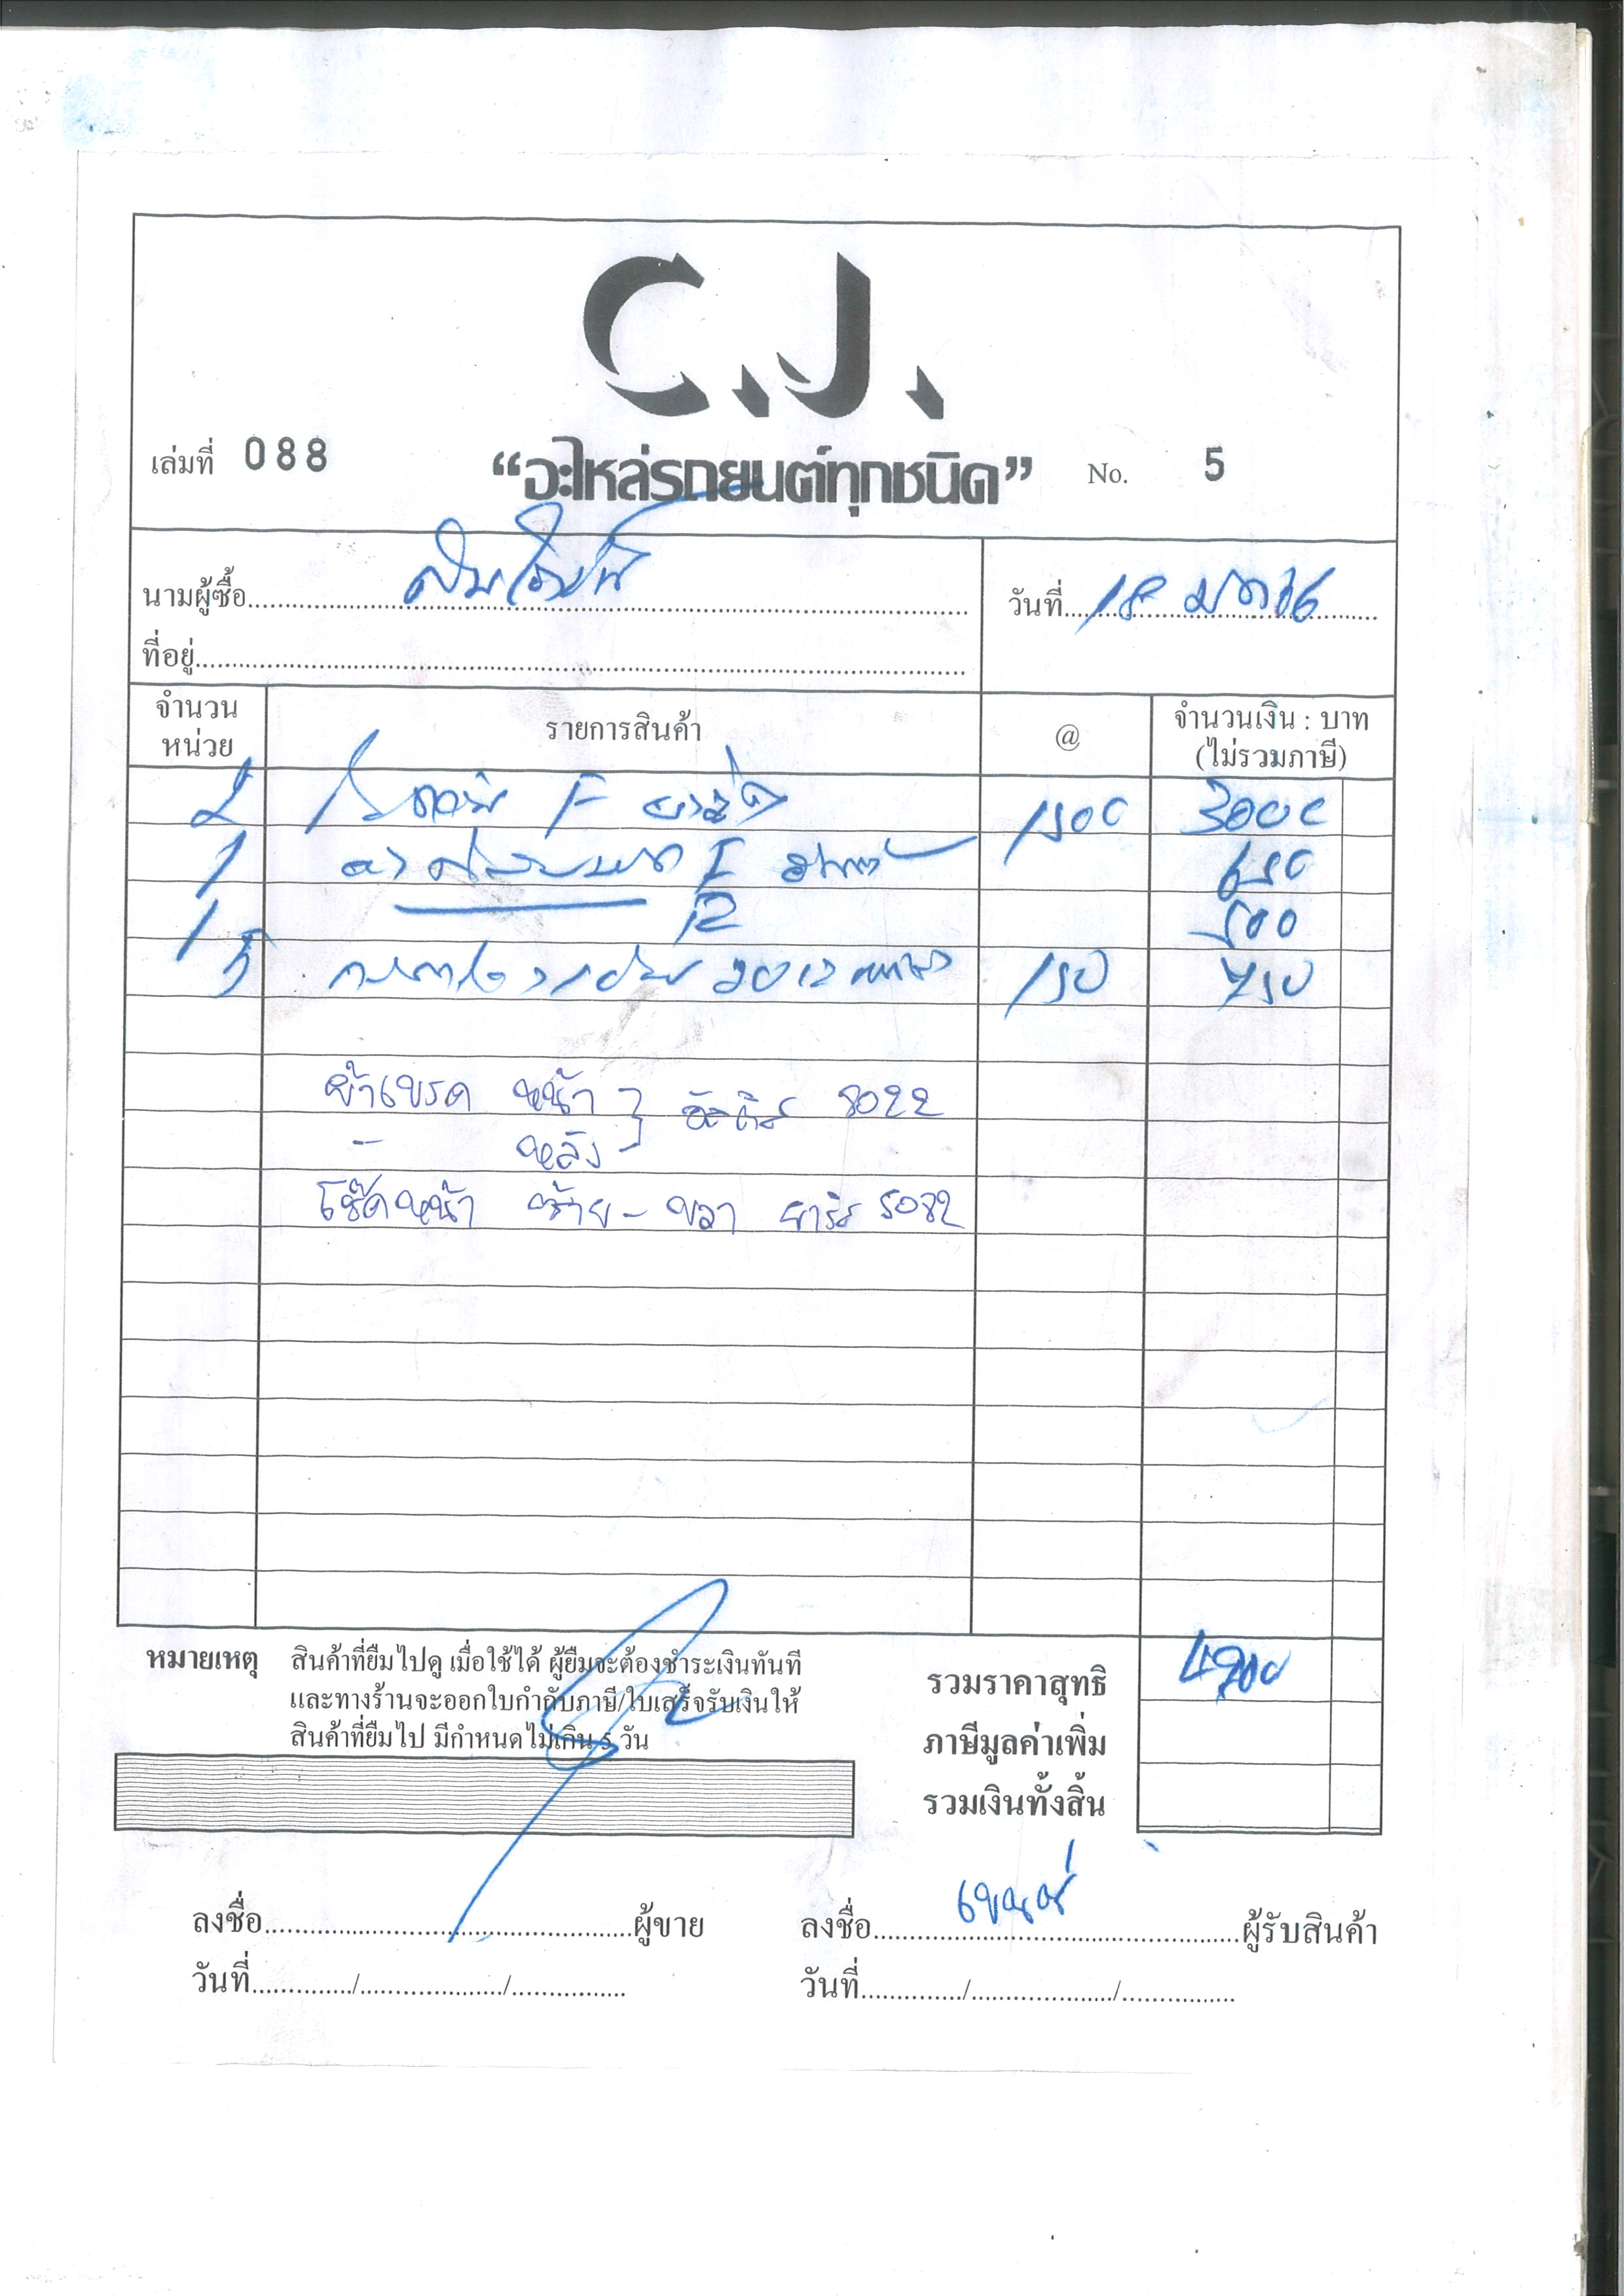 C.J.
เล่มที่ 088 “อะไหล่รถยนต์ทุกชนิด” No. 5
นามผู้ซื้อ วันที่ 18
ที่อยู่
จำนวนหน่วย รายการสินค้า @ จำนวนเงิน : บาท (ไม่รวมภาษี)
2 F 1500 3000
1 F 650
1 R 500
5 2012 150 750
ผ้าเบรค หน้า อัลติส 5022
- หลัง
โช๊คหน้า ซ้าย - ขวา ยาริส 5082
หมายเหตุ สินค้าที่ยืมไปดู เมื่อใช้ได้ ผู้ยืมจะต้องชำระเงินทันที
และทางร้านจะออกใบกำกับภาษี/ใบเสร็จรับเงินให้
สินค้าที่ยืมไป มีกำหนดไม่เกิน 5 วัน
รวมราคาสุทธิ 4900
ภาษีมูลค่าเพิ่ม
รวมเงินทั้งสิ้น
ลงชื่อ ผู้ขาย ลงชื่อ ผู้รับสินค้า
วันที่ / / วันที่ / /